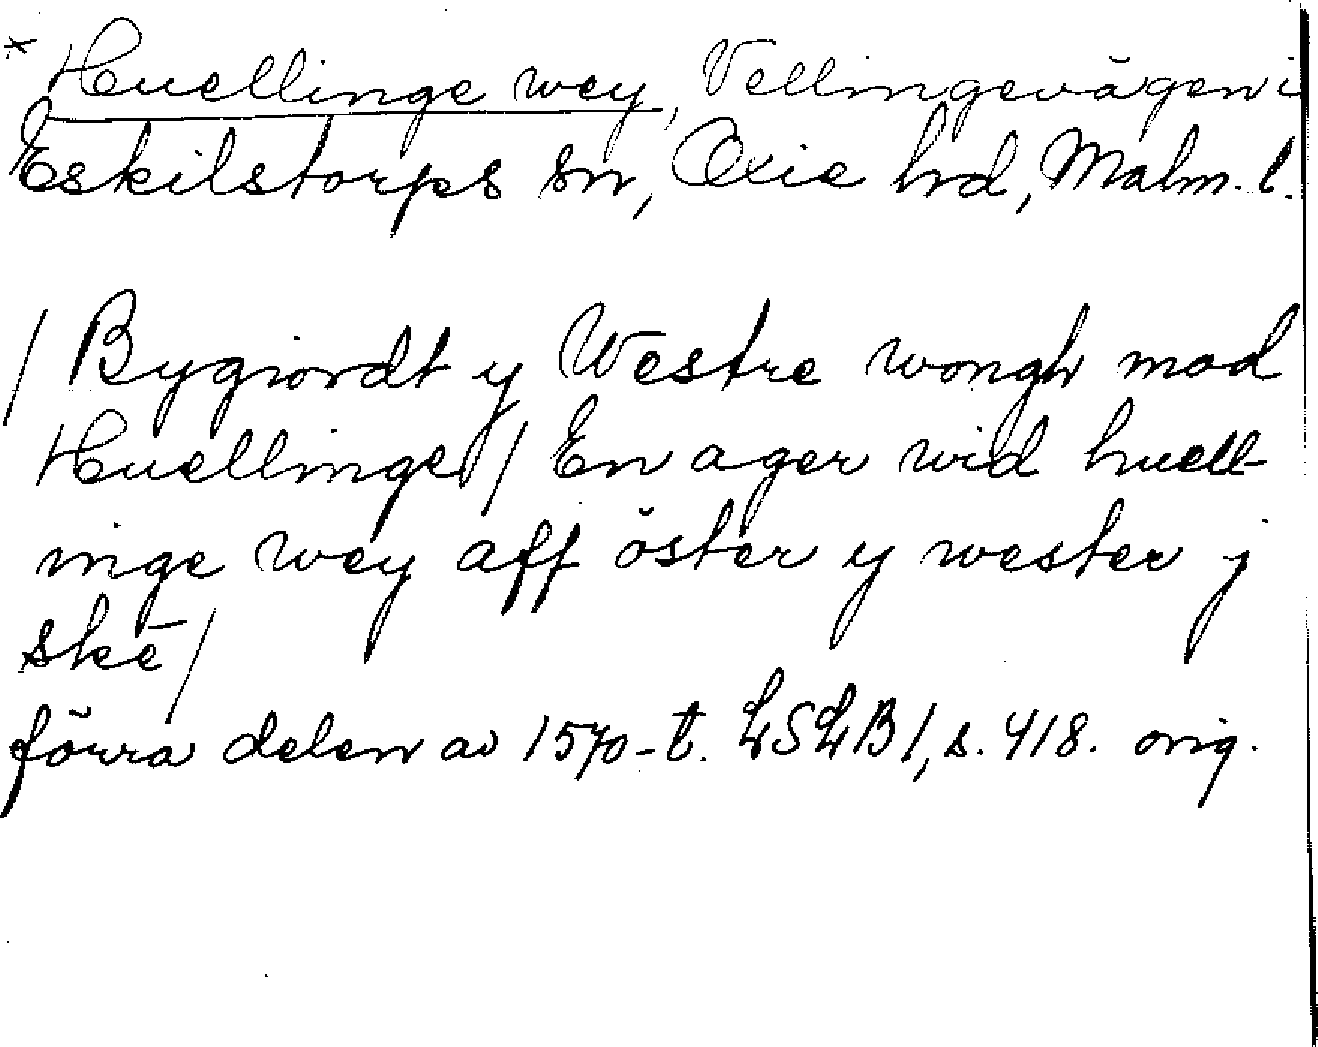 * Huellinge wey, Vellingevägen i
Eskilstorps sn, Oxie hd, Malm. l.
/ Bygiordt y Westre wongh mod
Huellinge / En ager wid huell-
inge wey aff öster y wester j
ske /
förra delen av 1570-t. LSLB 1, s. 418. orig.